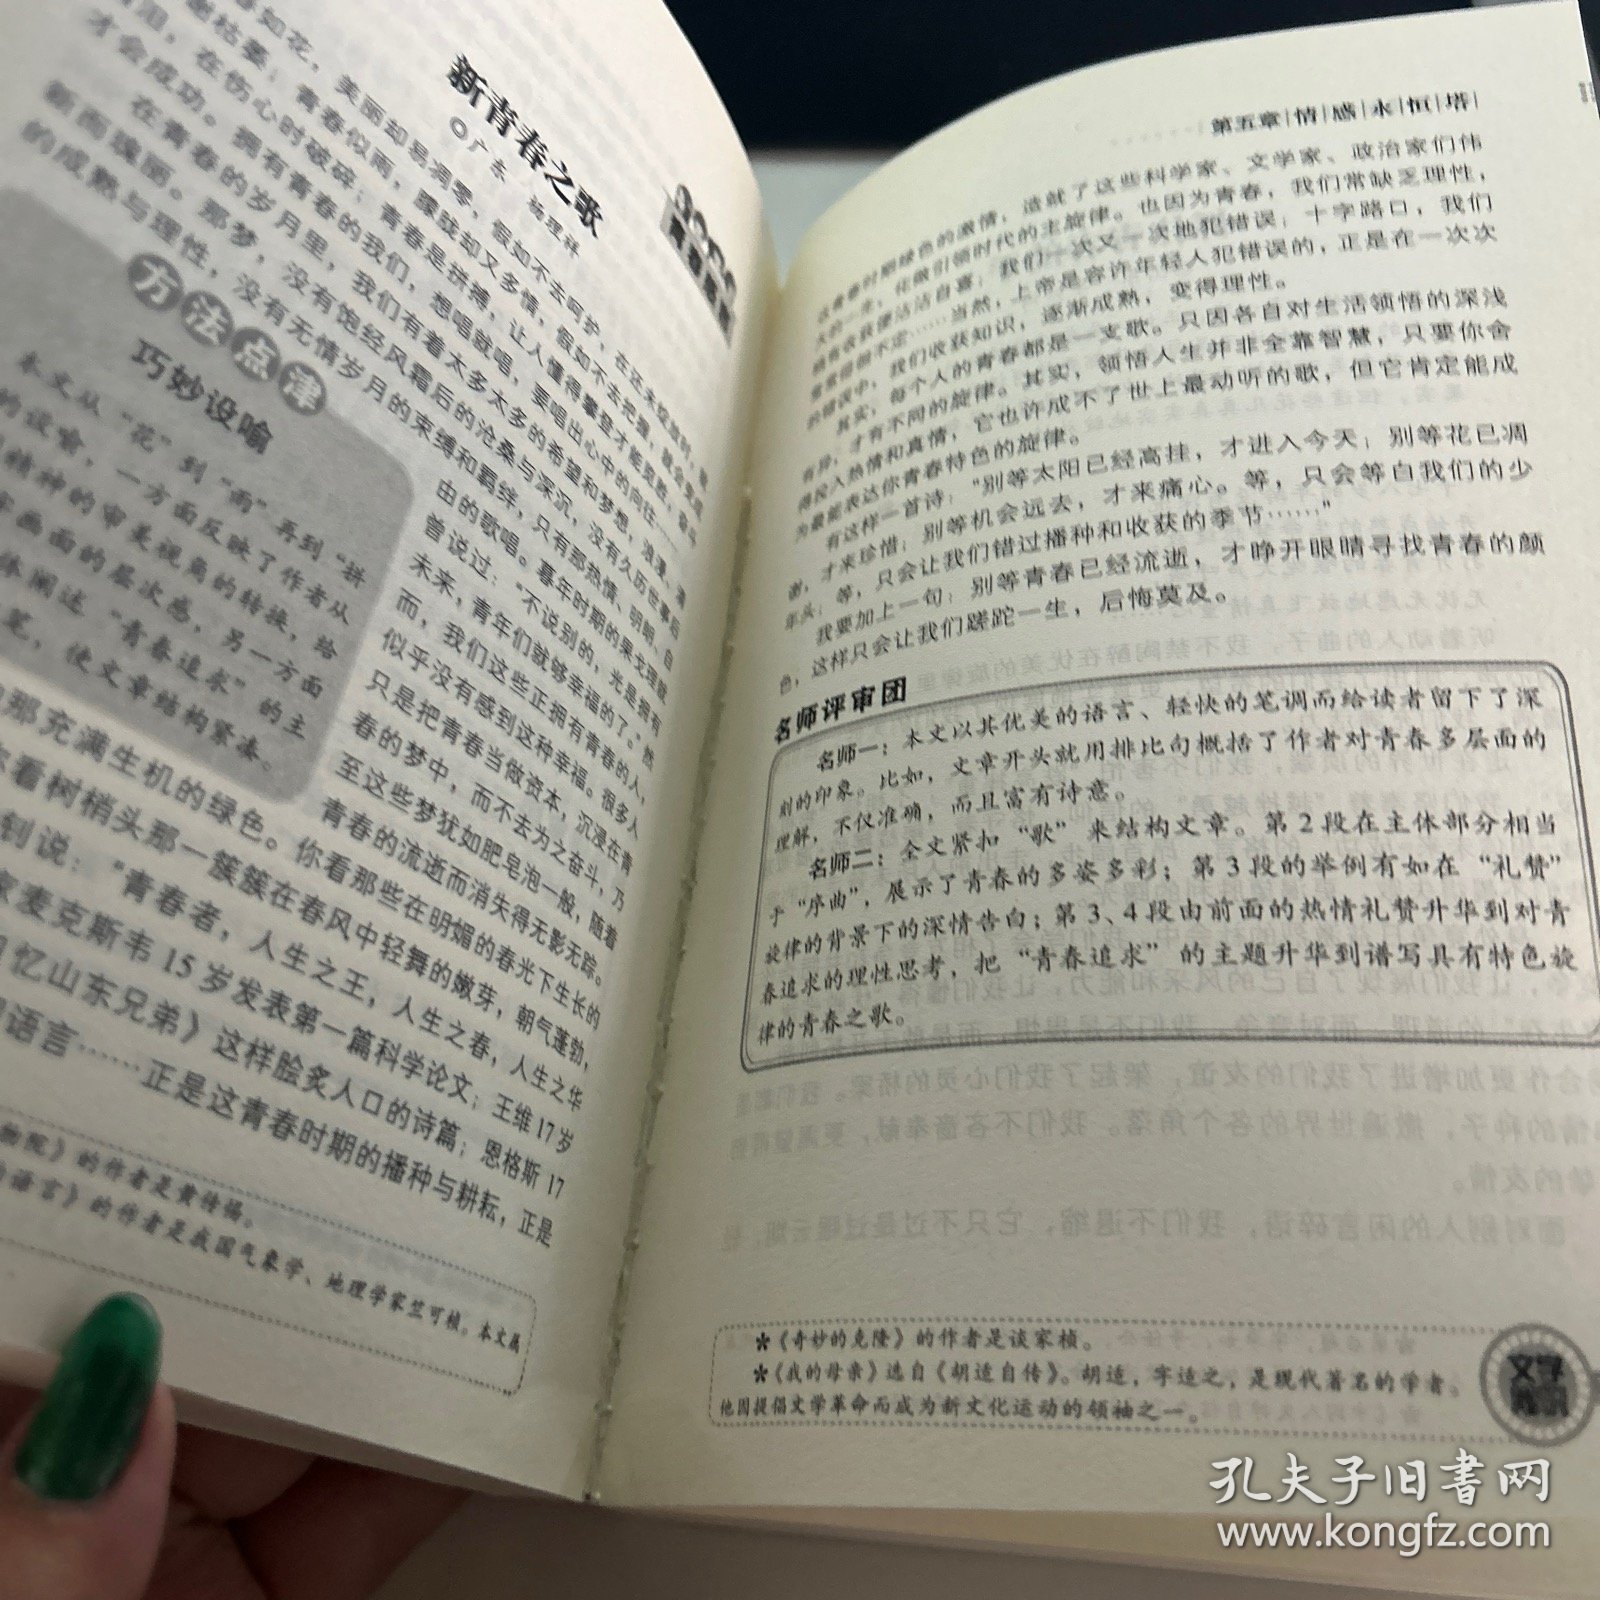 新青春之歌
○广东 杨理祥
春如花，美丽却易凋零，假如不去呵护，在还未绽放时，就
谢枯萎；青春似雨，朦胧却又多情，假如不去把握，就会变成
泪，在伤心时破碎；青春是拼搏，让人懂得攀登才能览胜，奋斗
才会成功。拥有青春的我们，想唱就唱，要唱出心中的向往……
在青春的岁月里，我们有着太多太多的希望和梦想，浪漫、清
新而瑰丽。那梦，没有饱经风霜后的沧桑与深沉，没有久历世事后
的成熟与理性，没有无情岁月的束缚和羁绊，只有那热情、明朗、自
由的歌唱。暮年时期的果戈理就
曾说过：“不说别的，光是拥有
未来，青年们就够幸福的了。”然
而，我们这些正拥有青春的人，
似乎没有感到这种幸福。很多人
只是把青春当做资本，沉浸在青
春的梦中，而不去为之奋斗，乃
至这些梦犹如肥皂泡一般，随着
青春的流逝而消失得无影无踪。
方法点津
巧妙设喻
本文从“花”到“雨”再到“拼
的设喻，一方面反映了作者从
精神的审美视角的转换，给
画面的层次感，另一方面
体阐述“青春追求”的主
笔，使文章结构紧凑。
那充满生机的绿色。你看那些在明媚的春光下生长的
你看树梢头那一簇簇在春风中轻舞的嫩芽，朝气蓬勃，
钊说：“青春者，人生之王，人生之春，人生之华
家麦克斯韦15岁发表第一篇科学论文；王维17岁
忆山东兄弟》这样脍炙人口的诗篇；恩格斯17
语言……正是这青春时期的播种与耕耘，正是
物院》的作者是黄传惕。
的语言》的作者是我国气象学、地理学家竺可桢。本文属
第五章|情|感|永|恒|塔|
这青春时期绿色的激情，造就了这些科学家、文学家、政治家们伟
大的一生，优傲引领时代的主旋律。也因为青春，我们常缺乏理性，
稍有收获便沾沾自喜；我们一次又一次地犯错误；十字路口，我们
常常徘徊不定……当然，上帝是容许年轻人犯错误的，正是在一次次
的错误中，我们收获知识，逐渐成熟，变得理性。
其实，每个人的青春都是一支歌。只因各自对生活领悟的深浅
有异，才有不同的旋律。其实，领悟人生并非全靠智慧，只要你舍
得投入热情和真情，它也许成不了世上最动听的歌，但它肯定能成
为最能表达你青春特色的旋律。
有这样一首诗：“别等太阳已经高挂，才进入今天；别等花已凋
谢，才来珍惜；别等机会远去，才来痛心。等，只会等白我们的少
年头；等，只会让我们错过播种和收获的季节……”
我要加上一句：别等青春已经流逝，才睁开眼睛寻找青春的颜
色，这样只会让我们蹉跎一生，后悔莫及。
名师评审团
名师一：本文以其优美的语言、轻快的笔调而给读者留下了深
刻的印象。比如，文章开头就用排比句概括了作者对青春多层面的
理解，不仅准确，而且富有诗意。
名师二：全文紧扣“歌”来结构文章。第2段在主体部分相当
于“序曲”，展示了青春的多姿多彩；第3段的举例有如在“礼赞”
旋律的背景下的深情告白；第3、4段由前面的热情礼赞升华到对青
春追求的理性思考，把“青春追求”的主题升华到谱写具有特色旋
律的青春之歌。
*《奇妙的克隆》的作者是谈家桢。
*《我的母亲》选自《胡适自传》。胡适，字适之，是现代著名的学者。
他因提倡文学革命而成为新文化运动的领袖之一。
孔夫子旧书网
www.kongfz.com